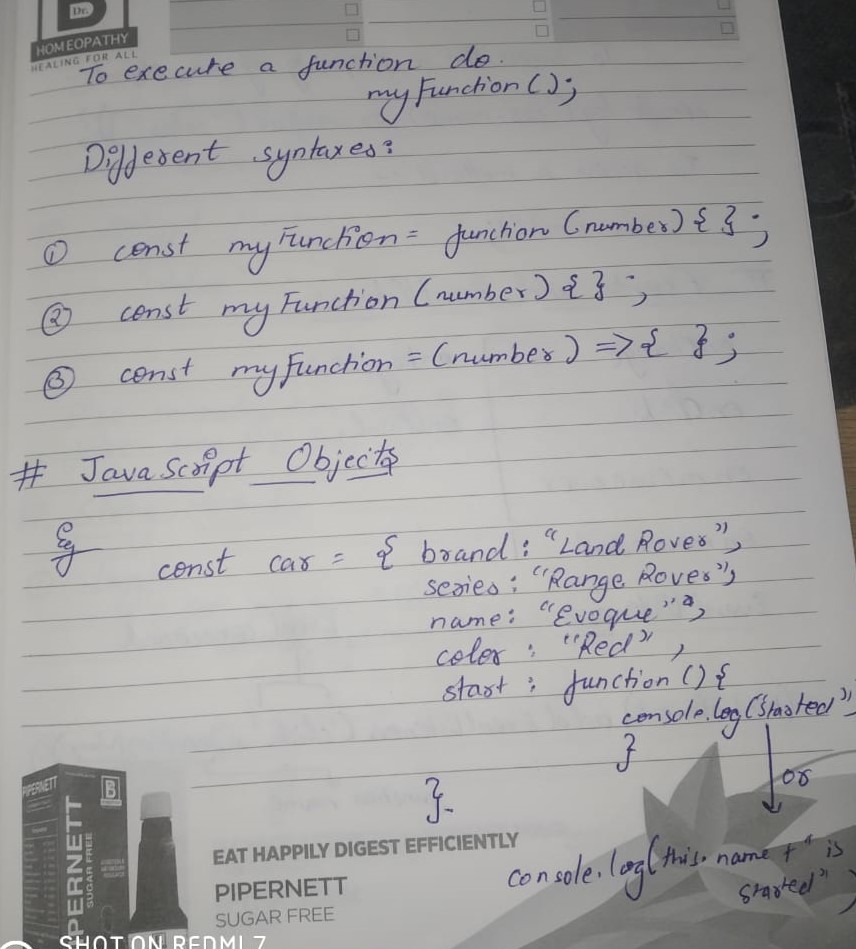 B
Dr.
HOMEOPATHY
HEALING FOR ALL
To execute a function do.
myFunction();
Different syntaxes:
① const myFunction = function (number) { };
② const myFunction (number) { };
③ const myFunction = (number) => { };
# JavaScript Objects
Eg
const car = { brand : "Land Rover",
series : "Range Rover",
name : "Evoque",
color : "Red",
start : function () {
console.log("Started"
}
or
}
console.log(this.name + " is
started")
PIPERNETT
B
PERNETT
SUGAR FREE
EAT HAPPILY DIGEST EFFICIENTLY
PIPERNETT
SUGAR FREE
SHOT ON REDMI 7